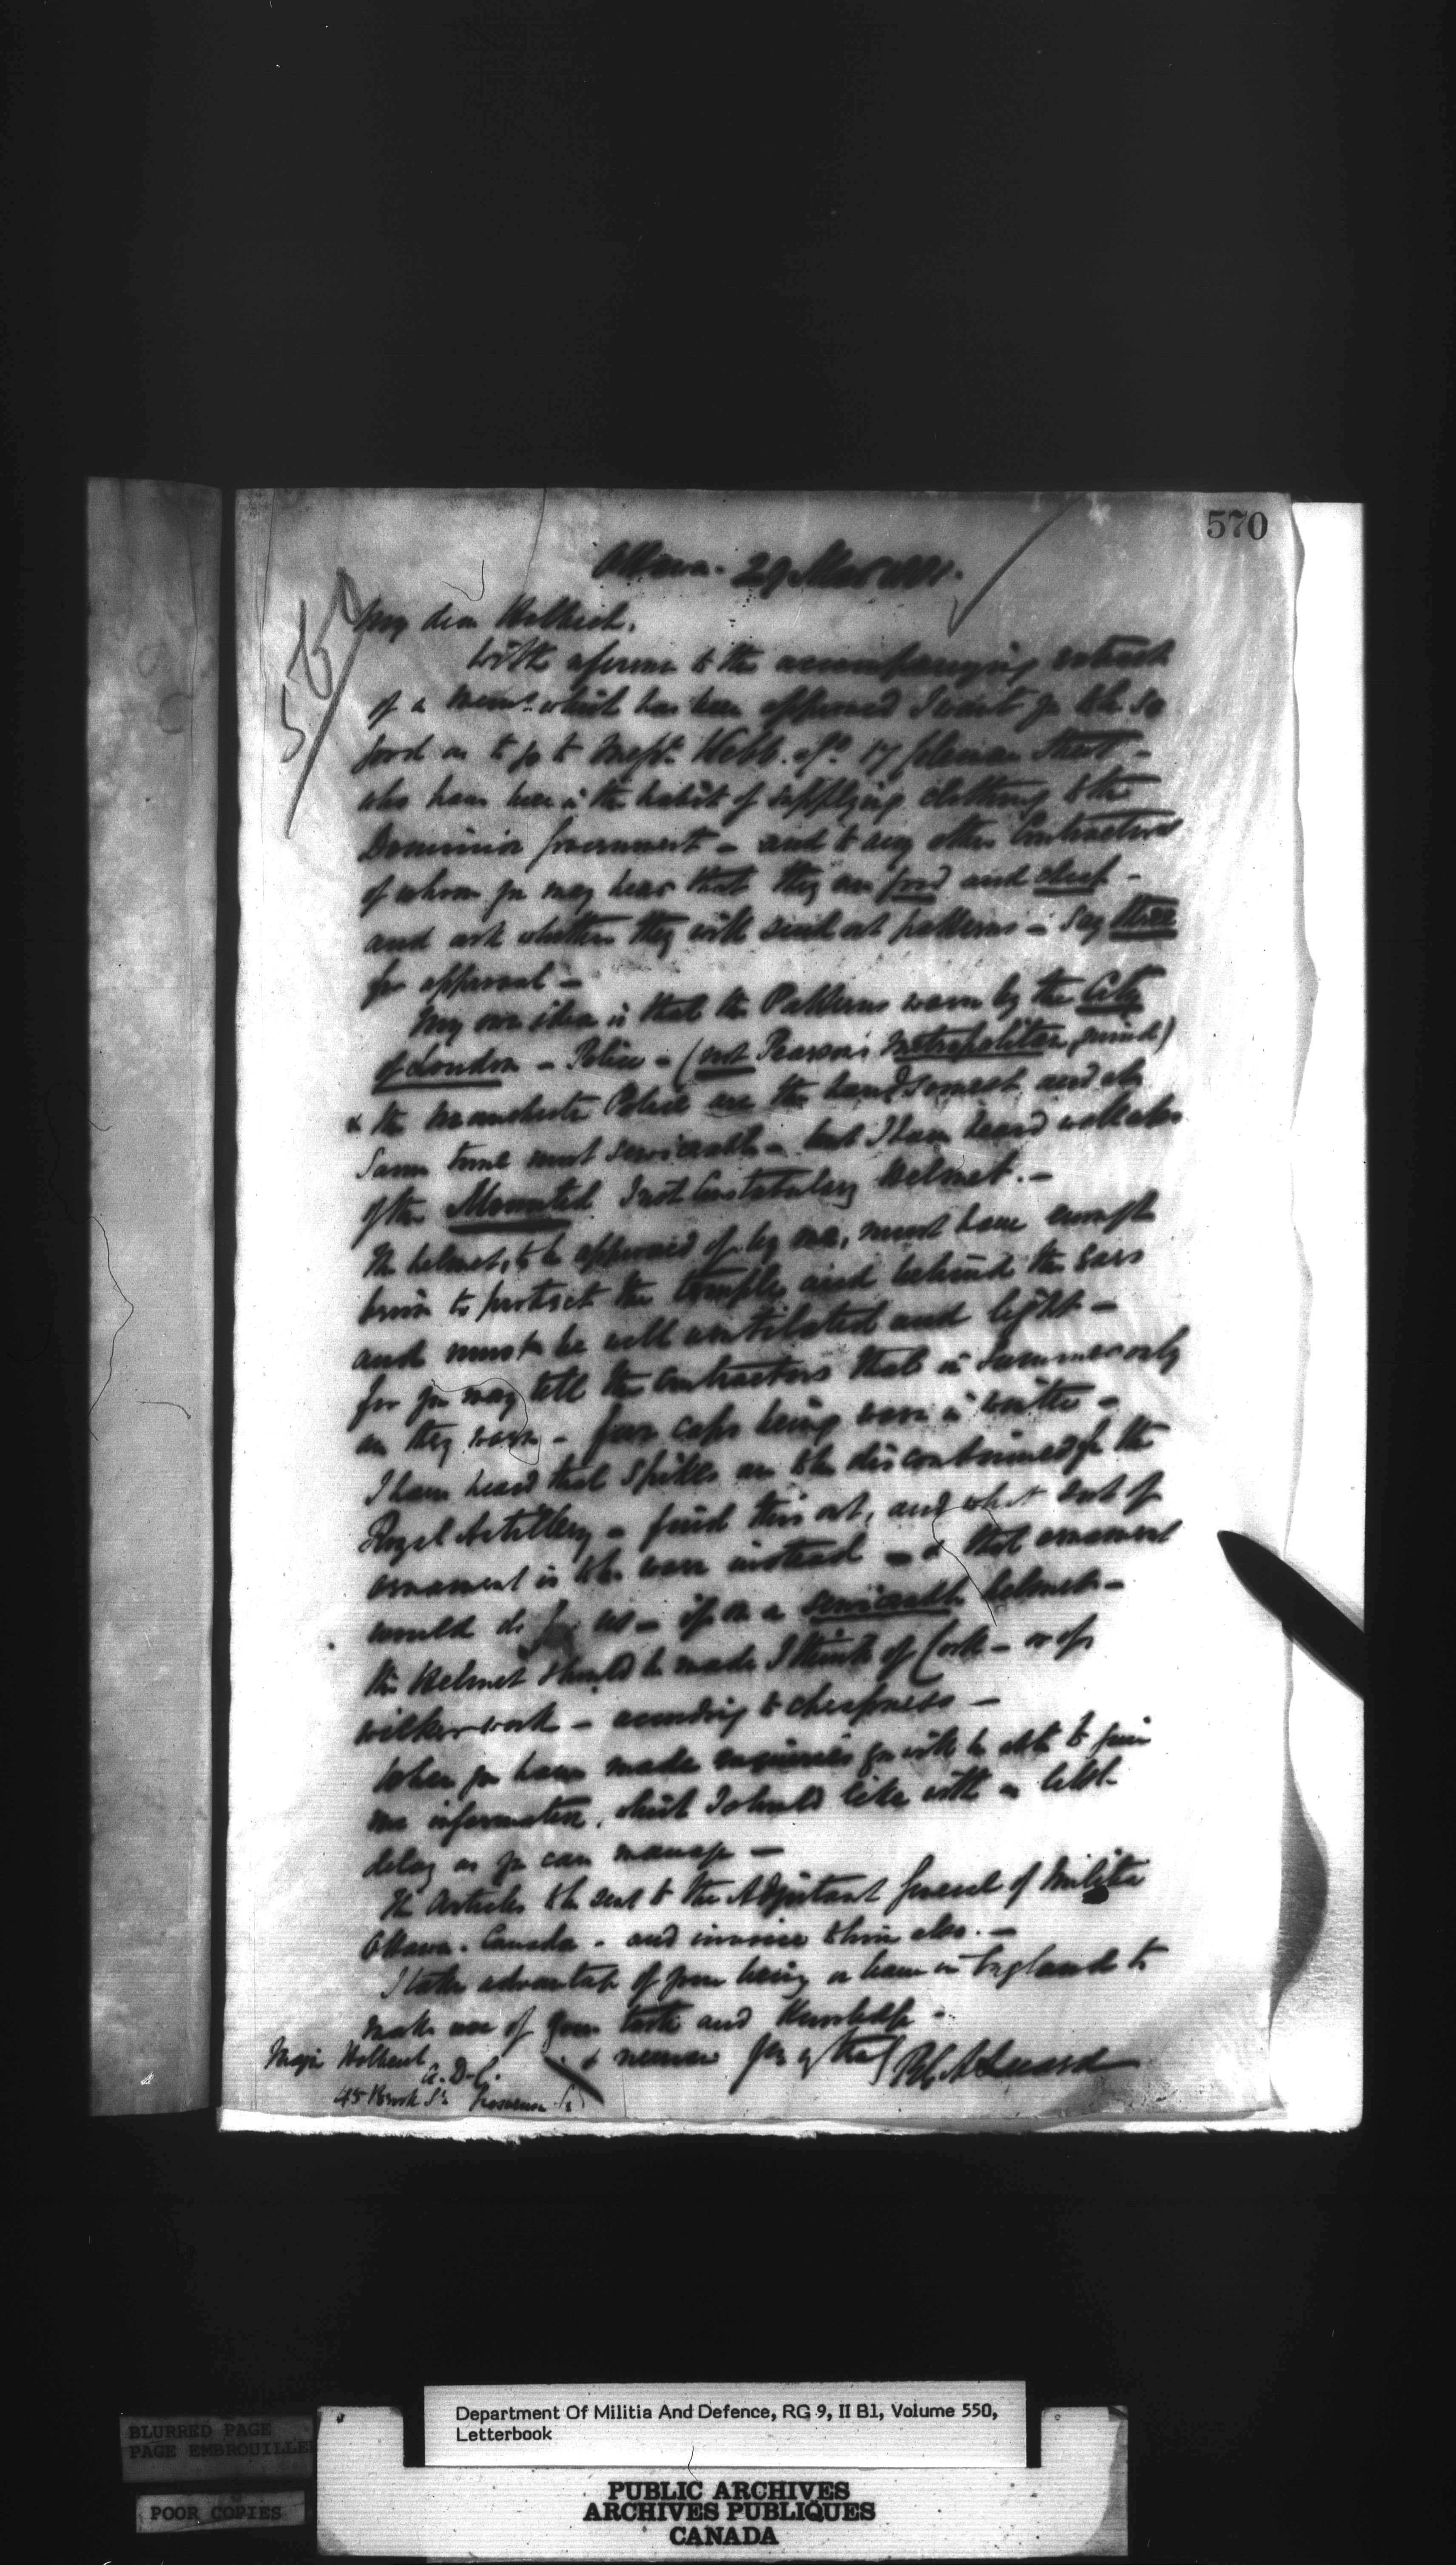 570
Ottawa. 29 Mar 1881.
My dear Holbech,
With reference to the accompanying extract
of a memo. which has been approved I want you to be so
good as to go to Messrs. Webb. & Co. 17 Coleman Street -
who have been in the habit of supplying clothing to the
Dominion Government - and to any other Contractors
of whom you may hear that they are good and cheap -
and ask whether they will send out patterns - say three
for approval -
My own idea is that the Patterns worn by the City
of London - Police - (not Pearson's Metropolitan)
& the Manchester Police are the handsomest and at the
same time most serviceable - but I have heard well also
of the Mounted Irish Constabulary Helmet. -
The helmet, to be approved of by me, must have enough
brim to protect the temples and behind the ears
and must be well ventilated and light -
for you may tell the contractors that in Summer only
are they worn - fur caps being worn in winter -
I have heard that Spikes are to be discontinued for the
Royal Artillery - find this out, and what sort of
ornament is to be worn instead - & that ornament
would do for us - if on a serviceable helmet -
the Helmet should be made I think of Cork - or of
wicker work - according to cheapness -
When you have made enquiries you will be able to give
me information, which I should like with as little
delay as you can manage -
The articles to be sent to the Adjutant General of Militia
Ottawa. Canada - and invoice to him also. -
I take advantage of your being on leave in England to
make use of your taste and Knowledge -
& remain yrs
Major Holbech
A.D.C.
45 Brook St. Grosvenor Sq
Department Of Militia And Defence, RG 9, II B1, Volume 550,
Letterbook
BLURRED PAGE
PAGE EMBROUILLE
POOR COPIES
PUBLIC ARCHIVES
ARCHIVES PUBLIQUES
CANADA